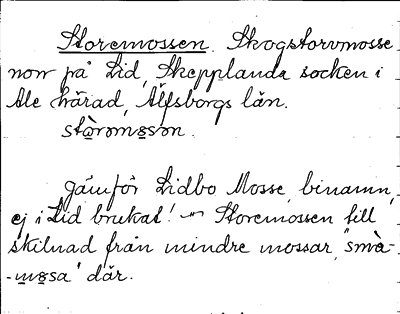 Storemossen. Skogstorvmosse
norr på Lid, Skepplanda socken i
Ale härad, Älfsborgs län.
stòrəmo̤sən.
Jämför Lidbo Mosse, binamn,
ej i Lid brukat! — Storemossen till
skilnad från mindre mossar, "små-
-mo̤sa" där.